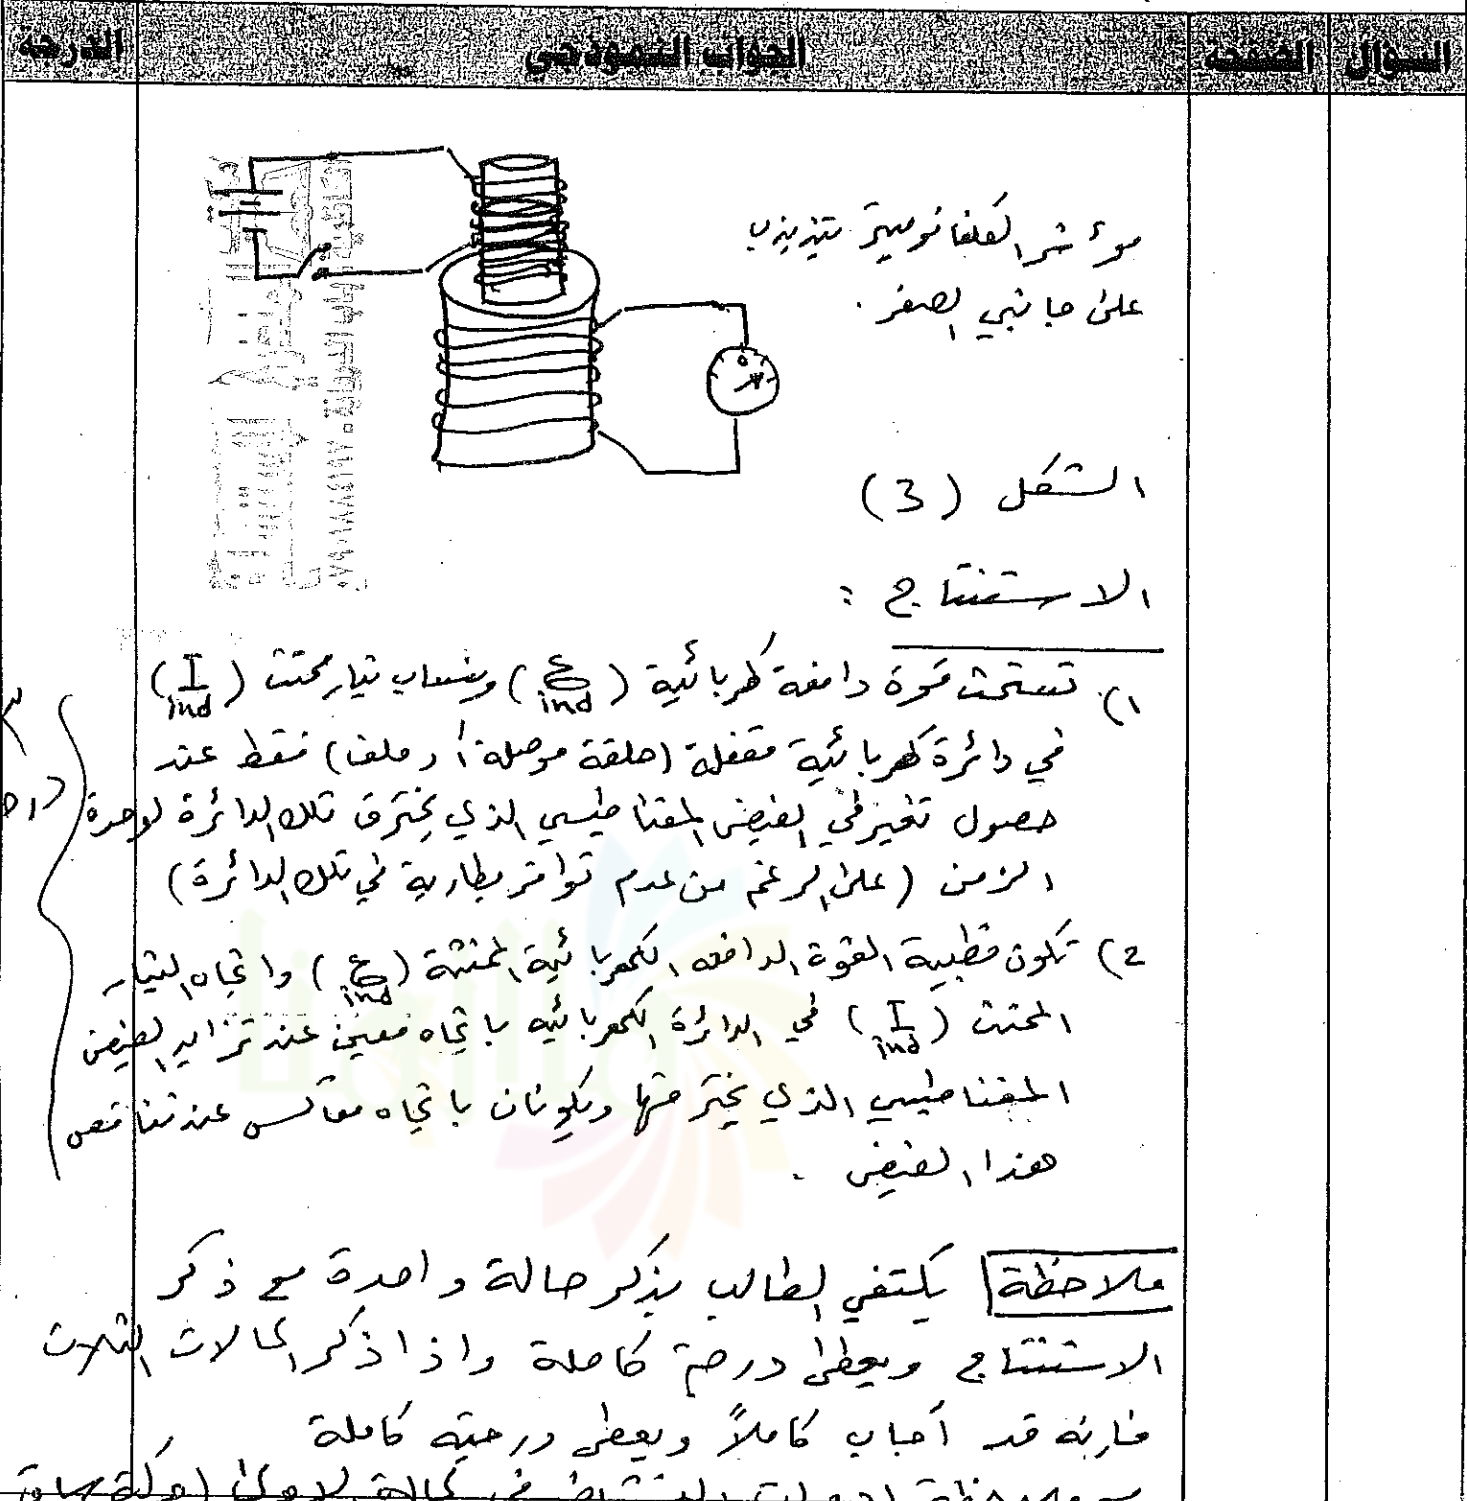 السؤال الصفحة الجواب النموذجي الدرجة
مؤشر الكلفانوميتر يتذبذب
على جانبي الصفر .
0
الشكل (3)
الاستنتاج :
1) تستحث قوة دافعة كهربائية (ε ind) وينساب تيار محتث (I ind)
في دائرة كهربائية مقفلة (حلقة موصلة أو ملف) فقط عند
حصول تغير في الفيض المغناطيسي الذي يخترق تلك الدائرة لوحدة
الزمن (على الرغم من عدم توافر بطارية في تلك الدائرة)
2) تكون قطبية القوة الدافعه الكهربائية المحتثة (ε ind) واتجاه التيار
المحتث (I ind) في الدائرة الكهربائيه باتجاه معين عند تزايد الفيض
المغناطيسي الذي يخترقها ويكونان باتجاه معاكس عند تناقص
هذا الفيض .
ملاحظة يكتفي الطالب بذكر حالة واحدة مع ذكر
الاستنتاج ويعطى درجة كاملة واذا ذكر الحالات الثلاث
فإنه قد أجاب كاملاً ويعطى درجته كاملة